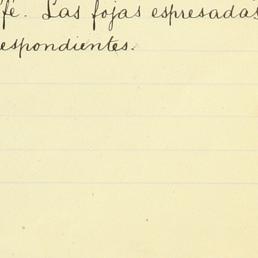 fé. Las fojas espresadas
espondientes.